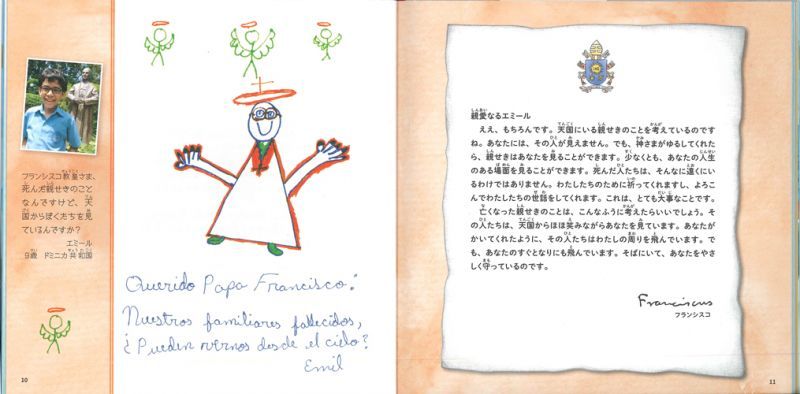 フランシスコ教皇さま、
死んだ親せきのこと
なんですけど、天
国からぼくたちを見
ているんですか？
エミール
9歳 ドミニカ共和国
Querido Papa Francisco:
Nuestros familiares fallecidos,
¿Pueden vernos desde el cielo?
Emil
10
親愛なるエミール
ええ、もちろんです。天国にいる親せきのことを考えているのです
ね。あなたには、その人が見えません。でも、神さまがゆるしてくれた
ら、親せきはあなたを見ることができます。少なくとも、あなたの人生
のある場面を見ることができます。死んだ人たちは、そんなに遠くにい
るわけではありません。わたしたちのために祈ってくれますし、よろこ
んでわたしたちの世話をしてくれます。これは、とても大事なことです。
亡くなった親せきのことは、こんなふうに考えたらいいでしょう。そ
の人たちは、天国からほほ笑みながらあなたを見ています。あなたが
かいてくれたように、その人たちはわたしの周りを飛んでいます。で
も、あなたのすぐとなりにも飛んでいます。そばにいて、あなたをやさ
しく守っているのです。
Franciscus
フランシスコ
11